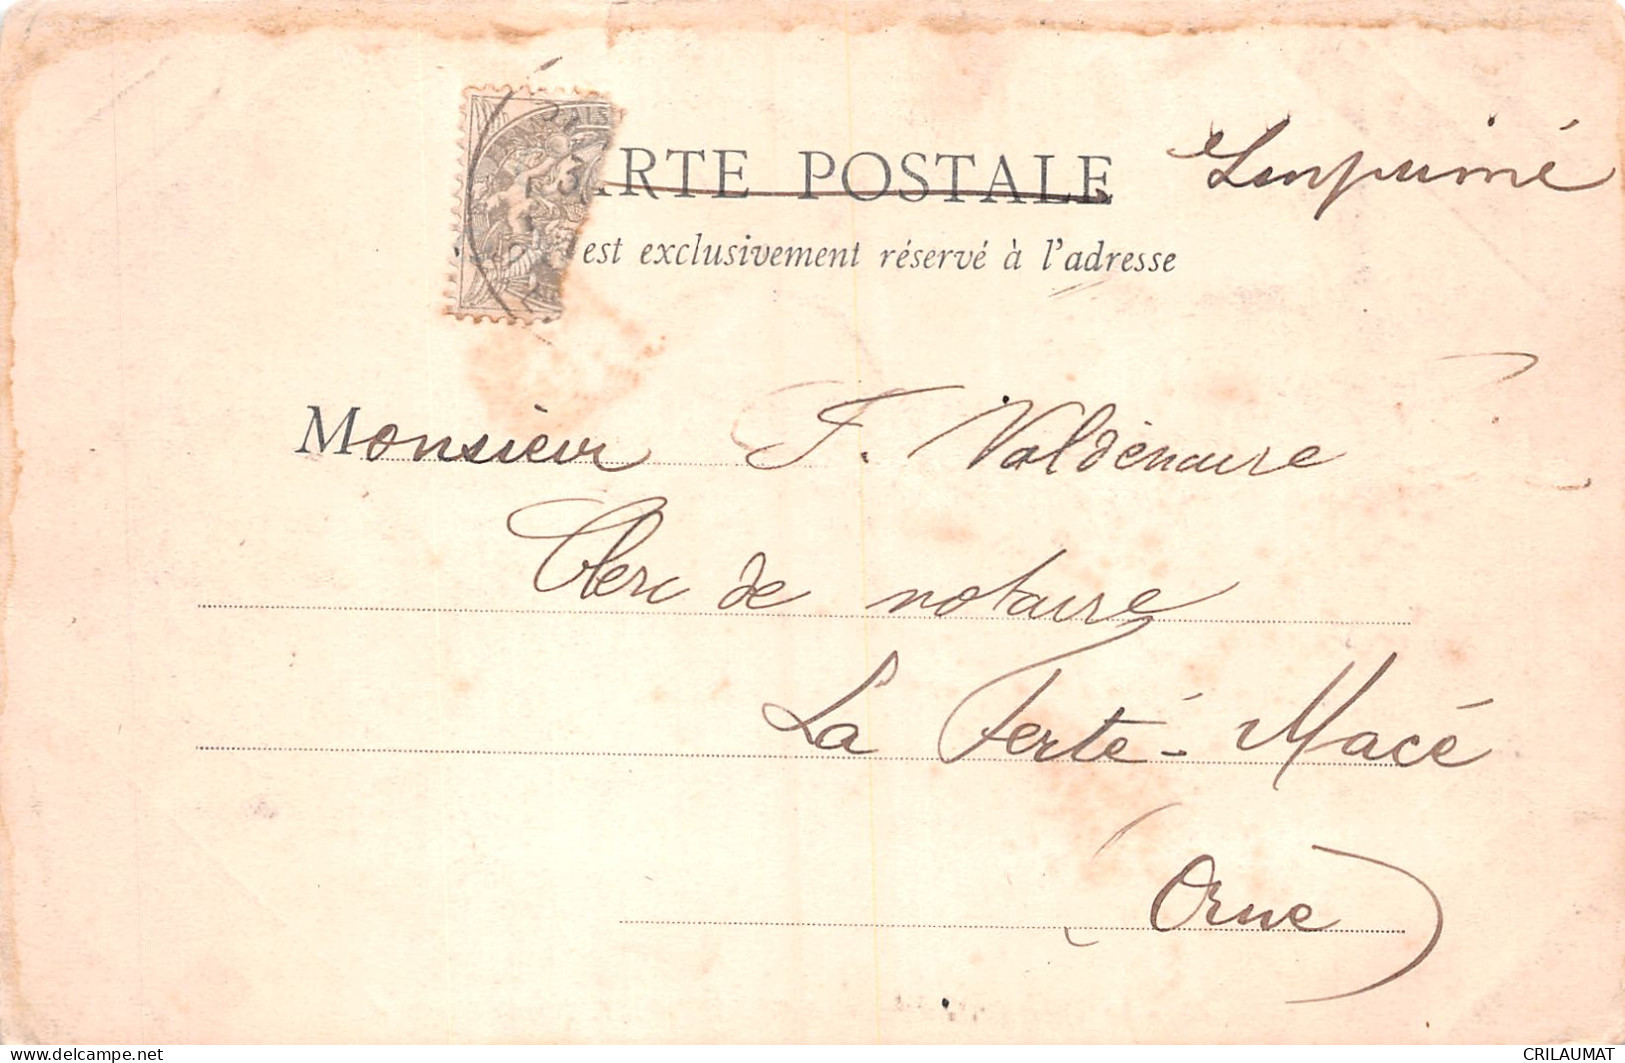 ARTE POSTALE Imprimé
est exclusivement réservé à l'adresse
Monsieur F. Valdenaire
Clerc de notaire
La Ferté-Macé
(Orne)
delcampe.net
CRILAUMAT